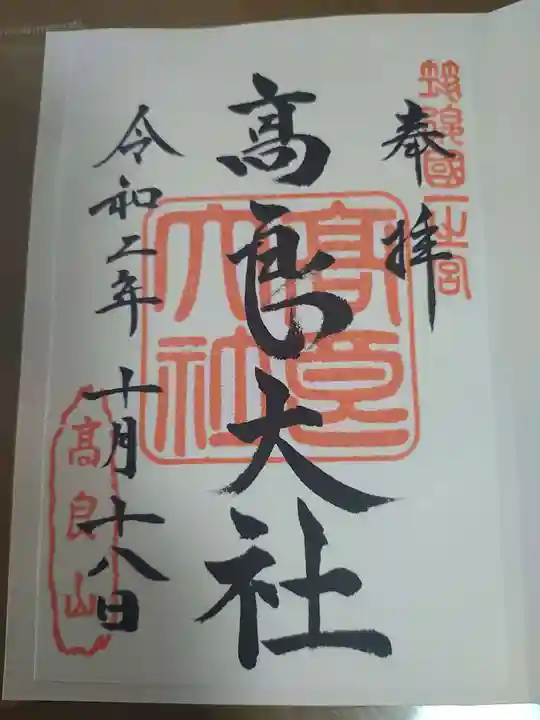 筑後國一之宮
奉拝
髙良大社
髙良大社
令和二年十月十八日
高良山